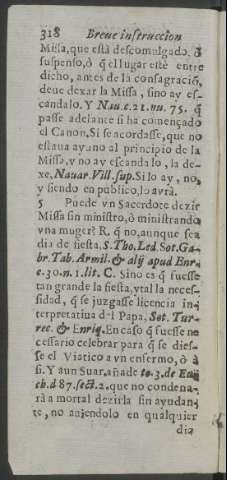 318 Breue instruccion
Missa, que està descomulgado, ò
suspenso, ò q̃ el lugar estè entre
dicho, antes de la consagraciõ,
deue dexar la Missa, sino ay es-
candalo. Y Nau. c. 21. nu. 75. q̃
passe adelante si ha començado
el Canon, Si se acordasse, que no
estaua ayuno al principio de la
Missa, y no ay escandalo, la de-
xe, Nauar. Vill. sup. Si lo ay, no,
y siendo en publico, lo avrà.
5 Puede vn Sacerdote dezir
Missa sin ministro, ò ministrando
vna muger? R. q̃ no, aunque sea
dia de fiesta, S. Tho. Led. Sot. Ga-
br. Tab. Armil. & alij apud Enr.
c. 30. n. 1. lit. C. Sino es q̃ fuesse
tan grande la fiesta, y tal la neces-
sidad, q̃ se juzgasse licencia in-
terpretatiua d'l Papa. Sot. Tur-
rec. & Enriq. En caso q̃ fuesse ne
cessario celebrar para q̃ se dies-
se el Viatico a vn enfermo, ò à
si. Y aun Suar. añade to. 3. de Eu
ch. d 87. sect. 2. que no condena-
rà a mortal dezirla sin ayudan-
te, no auiendolo en qualquier
dia